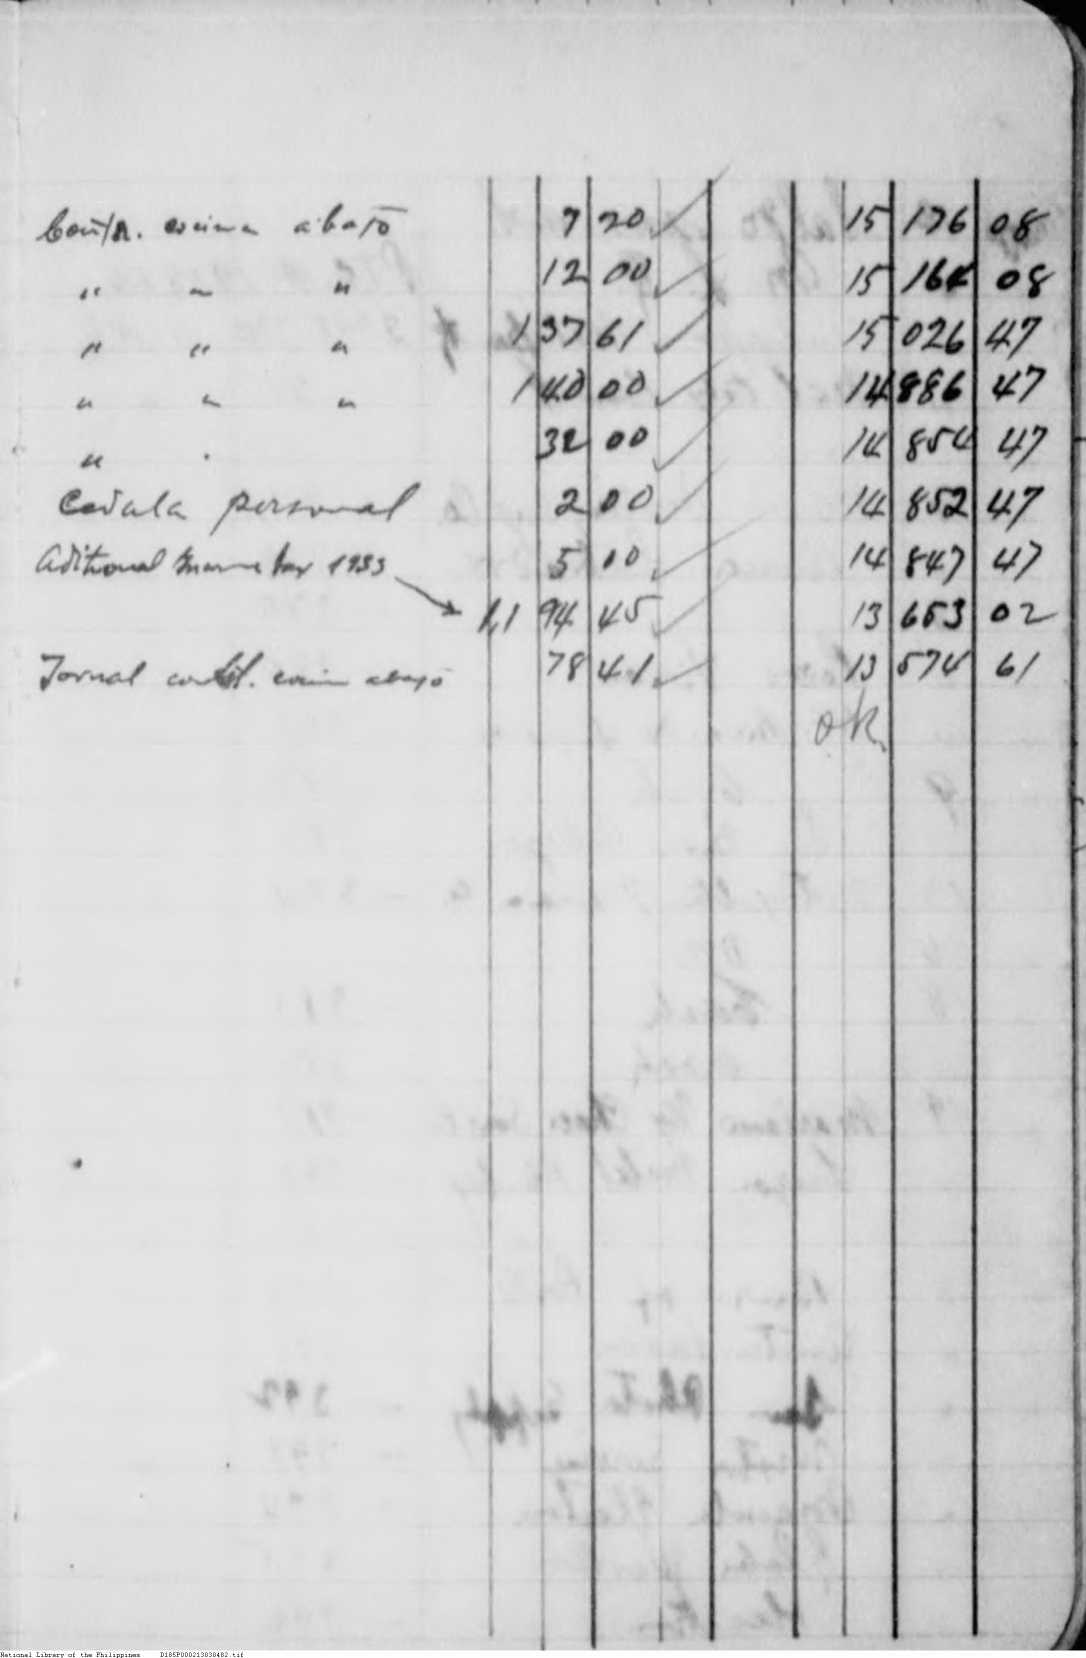 Contr. cocina abajo 7 20 ✓ 15 176 08
" " " 12 00 ✓ 15 164 08
" " " 1 37 61 ✓ 15 026 47
" " " 1 40 00 ✓ 14 886 47
" 32 00 ✓ 14 854 47
Cedula personal 2 00 ✓ 14 852 47
Aditional Income tax 1933 5 00 ✓ 14 847 47
1,1 94 45 ✓ 13 653 02
Jornal const. cocina abajo 78 41 ✓ 13 574 61
OK.
National Library of the Philippines D185P000213838482.tif